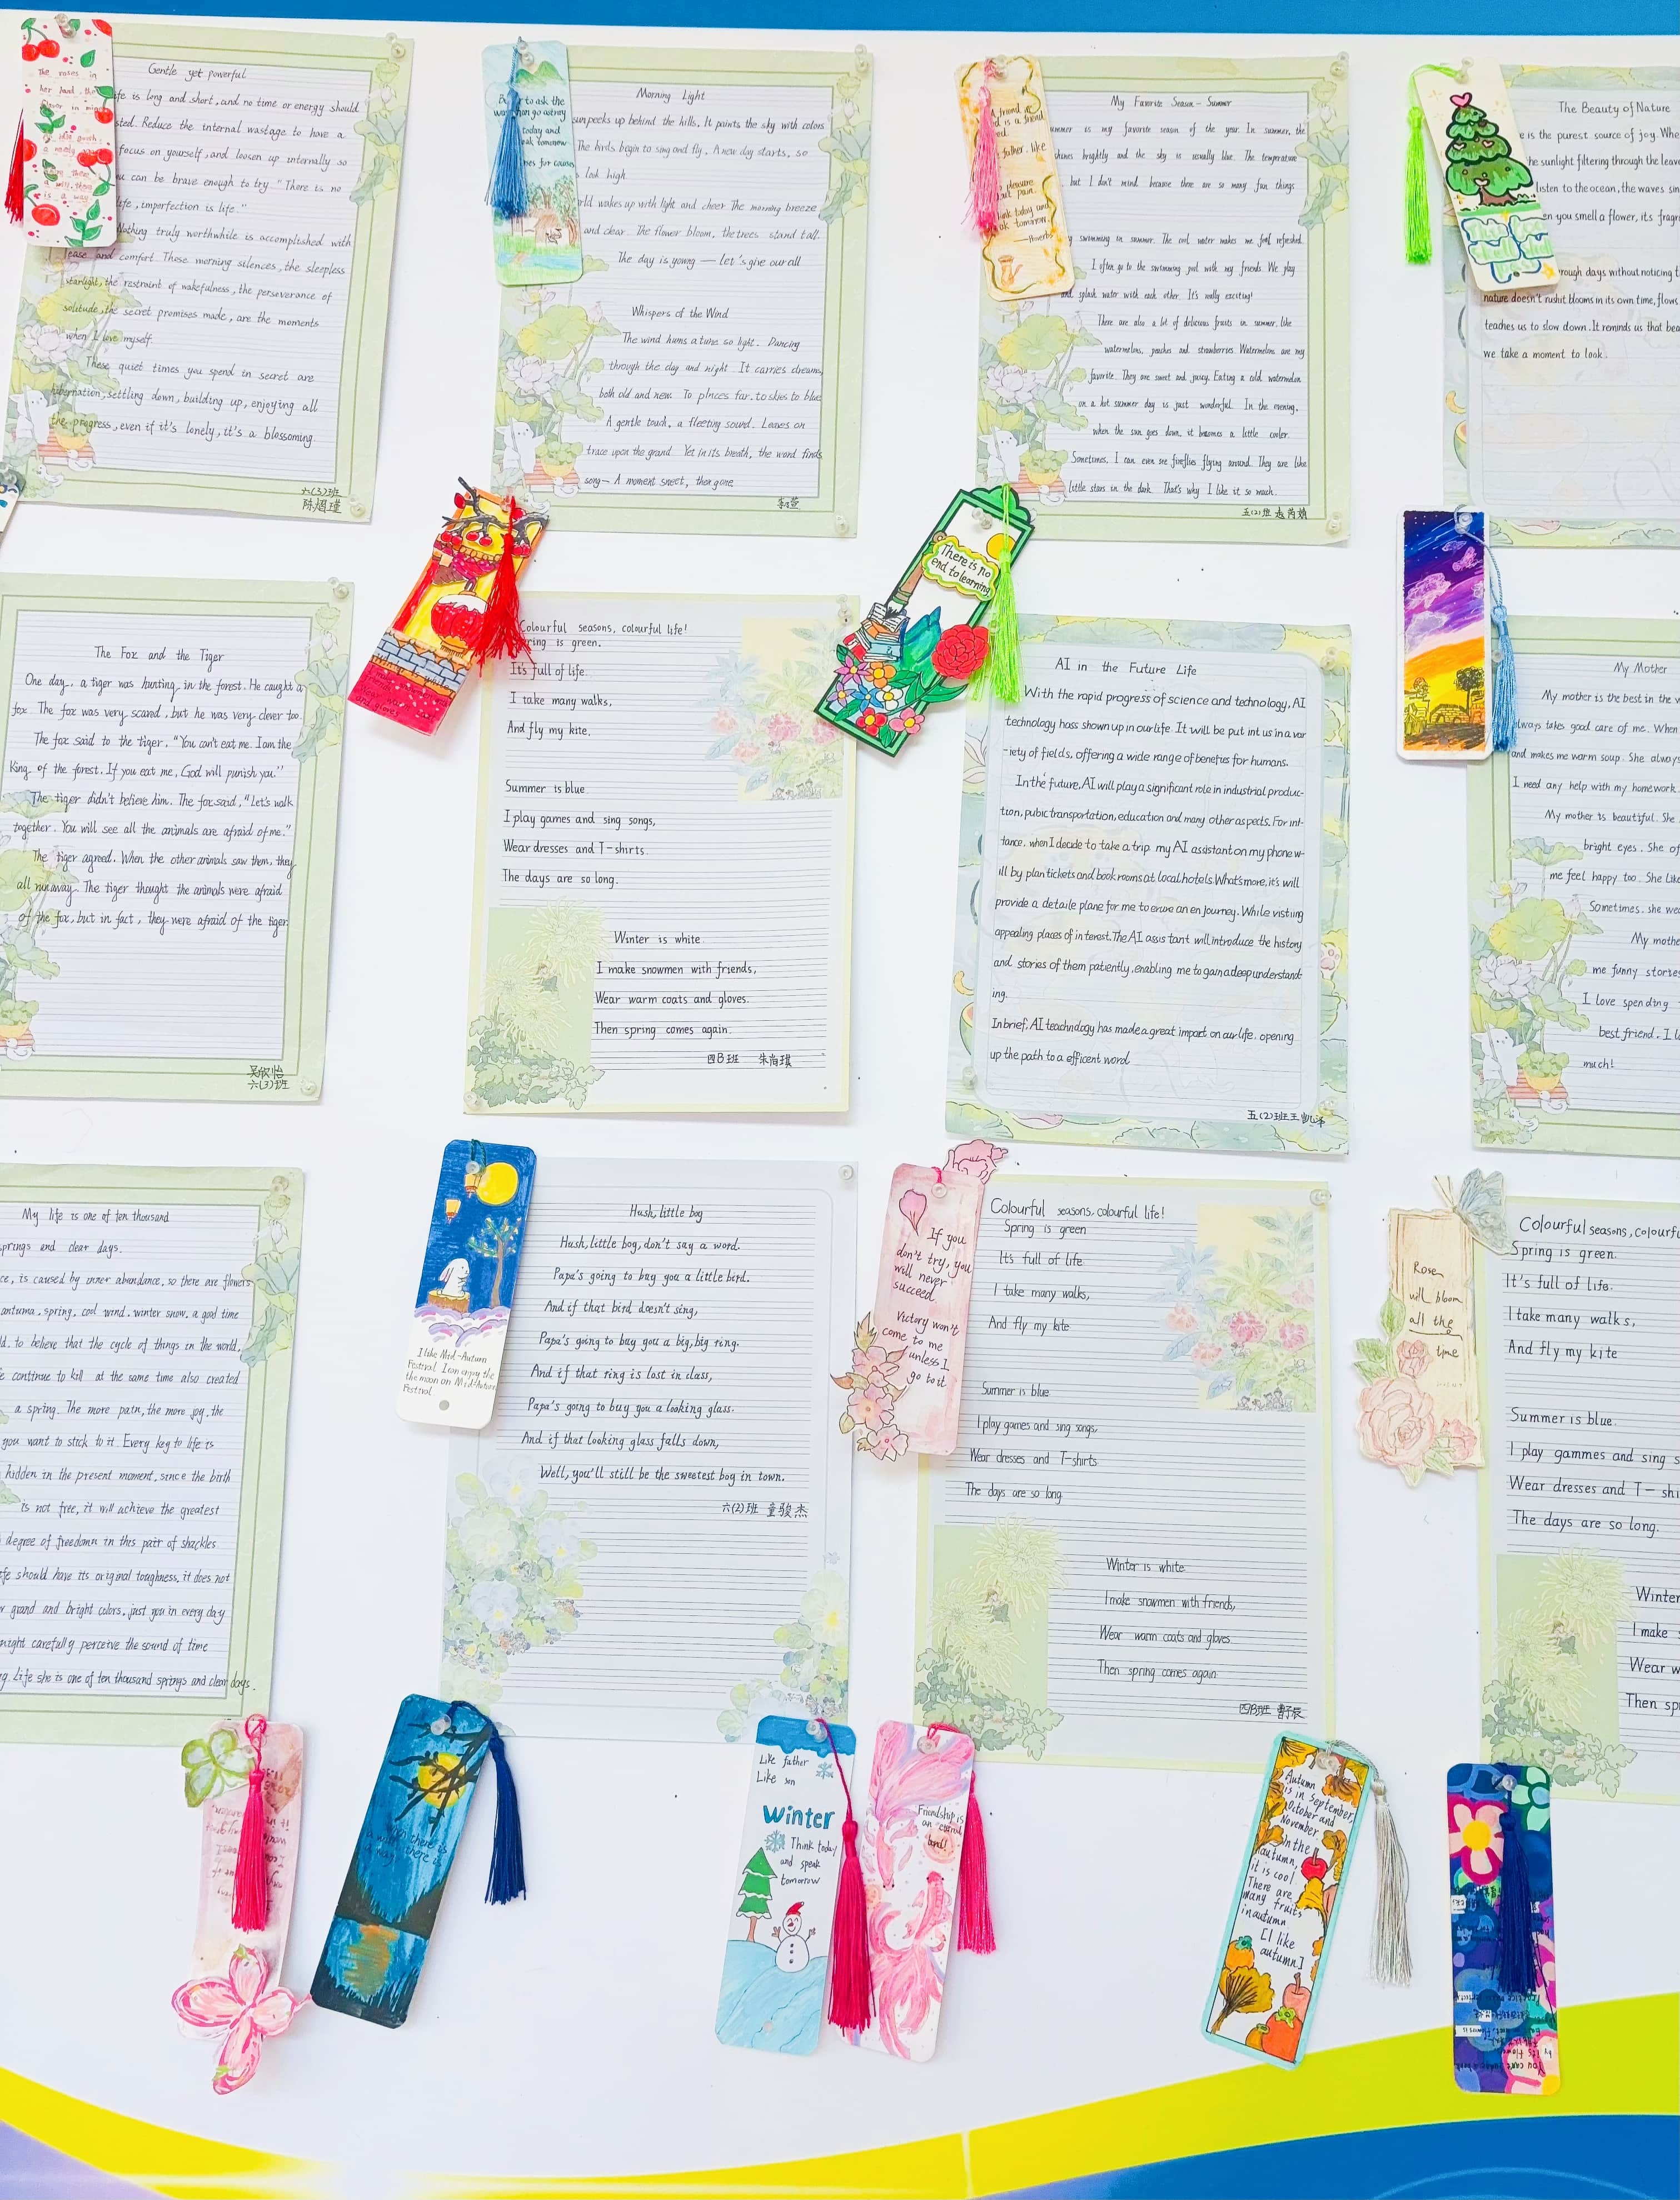 Gentle yet powerful
life is long and short, and no time or energy should
Reduce the internal wastage to have a
focus on yourself, and loosen up internally so
can be brave enough to try "There is no
life, imperfection is life."
Nothing truly worthwhile is accomplished with
ease and comfort. These morning silences, the sleepless
starlight, the restraint of wakefulness, the perseverance of
solitude, the secret promises made, are the moments
when I love myself.
These quiet times you spend in secret are
hibernation, settling down, building up, enjoying all
the progress, even if it's lonely, it's a blossoming.
六(3)班
Morning Light
sun peeks up behind the hills. It paints the sky with colors
The birds begin to sing and fly. A new day starts, so
look high.
wakes up with light and cheer The morning breeze
and clear. The flower bloom, the trees stand tall.
The day is young — let's give our all
Whispers of the Wind
The wind hums a tune so light. Dancing
through the day and night. It carries dreams,
both old and new. To places far, to skies to blue
A gentle touch, a fleeting sound. Leaves on
trace upon the grand. Yet in its breath, the word finds
song— A moment sweet, then gone
My Favorite Season - Summer
is my favorite season of the year. In summer, the
shines brightly and the sky is usually blue. The temperature
but I don't mind because there are so many fun things
swimming in summer. The cool water makes me feel refreshed.
I often go to the swimming pool with my friends. We play
and splash water with each other. It's really exciting!
There are also a lot of delicious fruits in summer, like
watermelons, peaches and strawberries. Watermelons are my
favorite. They are sweet and juicy. Eating a cold watermelon
on a hot summer day is just wonderful. In the evening,
when the sun goes down, it becomes a little cooler.
Sometimes, I can even see fireflies flying around. They are like
little stars in the dark. That's why I like it so much.
五(2)班
The Beauty of Nature
is the purest source of joy. Whe
the sunlight filtering through the leave
listen to the ocean, the waves sin
en you smell a flower, its fragr
rough days without noticing t
nature doesn't rush it blooms in its own time, flows
teaches us to slow down. It reminds us that bea
we take a moment to look.
There is no
end to learning
The Fox and the Tiger
One day, a tiger was hunting in the forest. He caught a
fox. The fox was very scared, but he was very clever too.
The fox said to the tiger. "You can't eat me. I am the
King of the forest. If you eat me, God will punish you."
The tiger didn't believe him. The fox said, "Let's walk
together. You will see all the animals are afraid of me."
The tiger agreed. When the other animals saw them, they
all run away. The tiger thought the animals were afraid
of the fox, but in fact, they were afraid of the tiger.
吴欣怡
六(3)班
Colourful seasons, colourful life!
Spring is green.
It's full of life.
I take many walks,
And fly my kite.
Summer is blue.
I play games and sing songs,
Wear dresses and T-shirts.
The days are so long.
Winter is white.
I make snowmen with friends,
Wear warm coats and gloves.
Then spring comes again.
四B班
AI in the Future Life
With the rapid progress of science and technology, AI
technology hass shown up in our life. It will be put int us in a var
-iety of fields, offering a wide range of benefits for humans.
In the future, AI will play a significant role in industrial produc-
tion, pubic transportation, education and many other aspects. For int-
tance, when I decide to take a trip. my AI assistant on my phone w-
ill by plan tickets and book rooms at local hotels. What's more, it's will
provide a detaile plane for me to en Journey. While vistiing
appealing places of interest. The AI assis tant will introduce the history
and stories of them patiently, enabling me to gain a deep understand-
ing.
In brief, AI teachnology has made a great impact on our life. opening
up the path to a efficent word
五(2)班王凯泽
My Mother
My mother is the best in the w
always takes good care of me. When
and makes me warm soup. She always
I need any help with my homework.
My mother is beautiful. She
bright eyes. She of
me feel happy too. She Like
Sometimes. she wea
My mothe
me funny stories
I love spending
best friend. I lo
much!
My life is one of ten thousand
springs and clear days.
is caused by inner abundance, so there are flowers
spring, cool wind, winter snow, a good time
to believe that the cycle of things in the world,
continue to kill at the same time also created
a spring. The more pain, the more joy, the
you want to stick to it. Every key to life is
hidden in the present moment, since the birth
is not free, it will achieve the greatest
degree of freedomn in this pair of shackles
life should have its original toughness, it does not
grand and bright colors, just you in every day
night carefully perceive the sound of time
Life she is one of ten thousand springs and clear days.
I like Mid-Autumn
Festival. I can enjoy the
the moon on Mid-Autumn
Festival
Hush, little boy
Hush, little boy, don't say a word.
Papa's going to buy you a little bird.
And if that bird doesn't sing,
Papa's going to buy you a big, big ring.
And if that ring is lost in class,
Papa's going to buy you a looking glass.
And if that looking glass falls down,
Well, you'll still be the sweetest boy in town.
六(2)班 童骏杰
If you
don't try, you
will never
succeed
Victory won't
come to me
unless I
go to it
Colourful seasons, colourful life!
Spring is green
It's full of life
I take many walks,
And fly my kite
Summer is blue
I play games and sing songs,
Wear dresses and T-shirts
The days are so long
Winter is white
I make snowmen with friends,
Wear warm coats and gloves
Then spring comes again
四B班
Rose
will bloom
all the
time
Colourful seasons, colourfu
Spring is green.
It's full of life.
I take many walks,
And fly my kite
Summer is blue.
I play gammes and sing s
Wear dresses and T-shi
The days are so long.
Winter
I make
Wear w
Then sp
Like father
Like son
Winter
Think today
and speak
tomorrow
Friendship is
an eternal
bond!
Autumn
is in September,
October and
November
In the
autumn,
it is cool
There are
many fruits
in autumn.
[I like
autumn.]